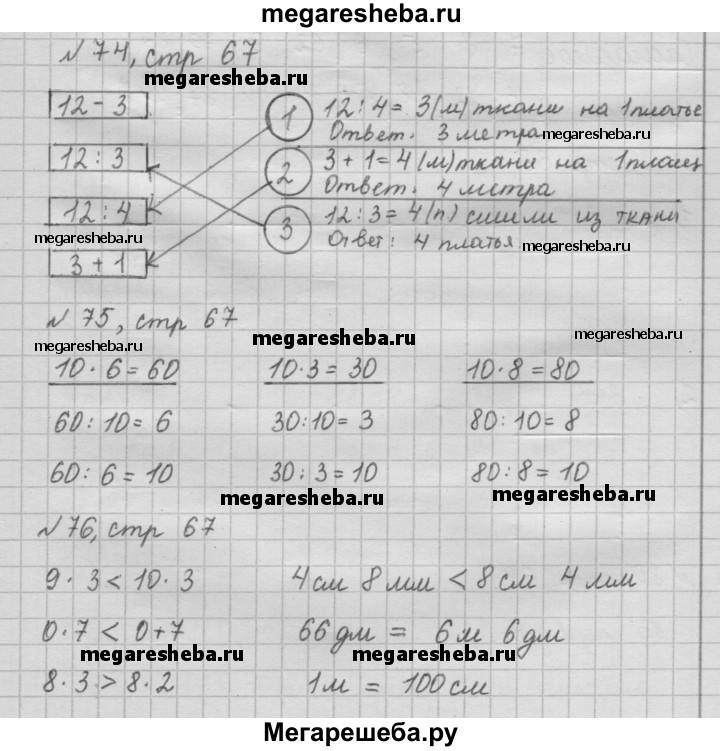 megaresheba.ru
№ 74, стр 67
megaresheba.ru
12 - 3
12 : 3
12 : 4
megaresheba.ru
3 + 1
1 12 : 4 = 3 (м) ткани на 1 платье
Ответ. 3 метра megaresheba.ru
2 3 + 1 = 4 (м) ткани на 1 плащ
Ответ. 4 метра
3 12 : 3 = 4 (п) сшили из ткани
Ответ: 4 платья megaresheba.ru
№ 75, стр 67
megaresheba.ru megaresheba.ru megaresheba.ru
10 · 6 = 60 10 · 3 = 30 10 · 8 = 80
60 : 10 = 6 30 : 10 = 3 80 : 10 = 8
60 : 6 = 10 30 : 3 = 10 80 : 8 = 10
megaresheba.ru megaresheba.ru
№ 76, стр 67
9 · 3 < 10 · 3 4 см 8 мм < 8 см 4 мм
0 · 7 < 0 + 7 66 дм = 6 м 6 дм
megaresheba.ru megaresheba.ru
8 · 3 > 8 · 2 1 м = 100 см
Мегарешеба.ру